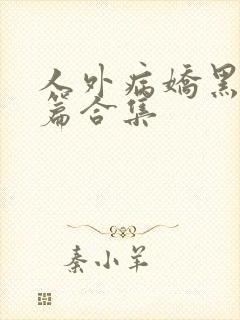 人外病娇黑
篇合集
秦小羊